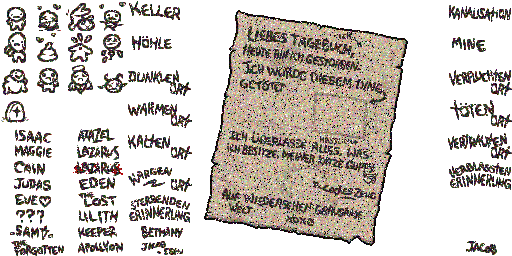 KELLER
HÖHLE
DUNKLEN ORT
WARMEN ORT
KALTEN ORT
KARGEN ORT
STERBENDEN ERINNERUNG
ISAAC
MAGGIE
CAIN
JUDAS
EVE
???
SAM
THE FORGOTTEN
AZAZEL
LAZARUS
EDEN
THE LOST
LILITH
KEEPER
APOLLYON
BETHANY
JACOB
LIEBES TAGEBUCH,
HEUTE BIN ICH GESTORBEN.
ICH WURDE DIESEM
GETÖTET
ICH ÜBERLASSE ALLES, WAS
ICH BESITZE, MEINER KATZE GUPPY.
AUF WIEDERSEHEN GRAUSAME
WELT
XOXO
KANALISATION
MINE
VERFLUCHTEN ORT
TÖTEN ORT
VERTRAUTEN ORT
VERBLASSTEN ERINNERUNG
JACOB